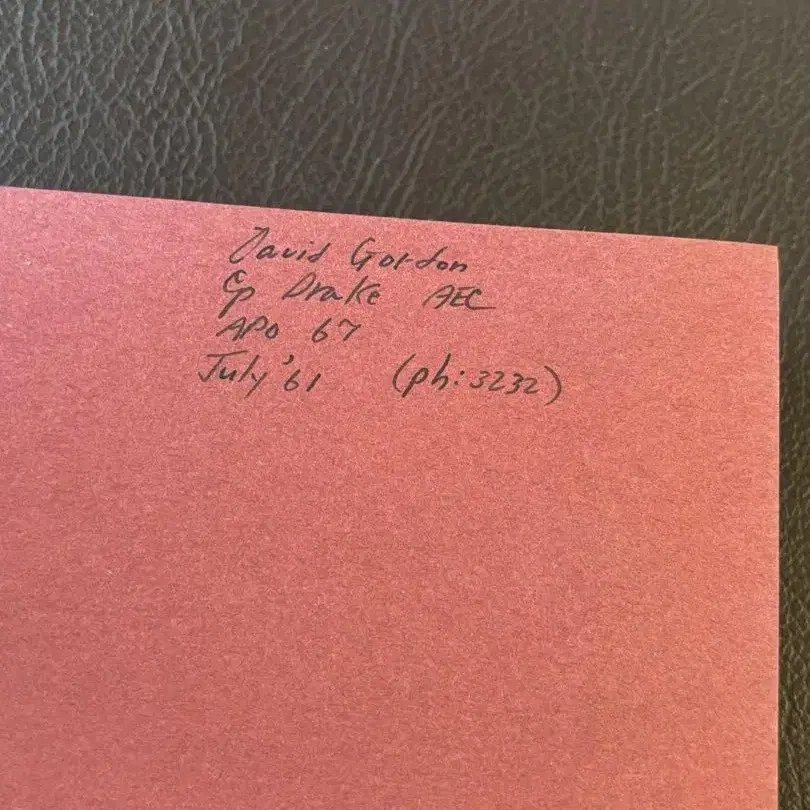 David Gordon
Cp Drake AEC
APO 67
July '61 (ph: 3232)